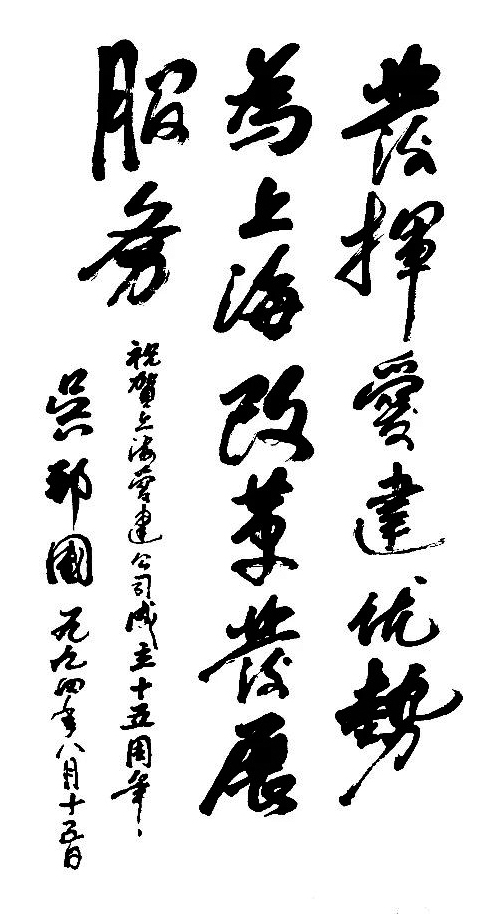 發揮愛建优勢
為上海改革發展
服务
祝賀上海愛建公司成立十五周年、
吳邦國 一九九四年八月十五日